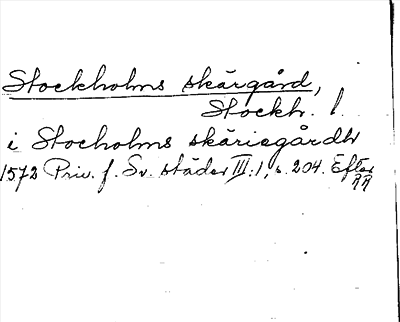 Stockholms skärgård,
Stockh. l.
i Stocholms skäriagårdh
1572 Priv. f. Sv. städer III:1, s. 204. Efter
RR